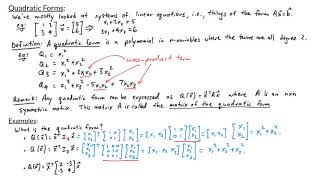 Quadratic Forms:
We're mostly looked at systems of linear equations, i.e., things of the form A x⃗ = b⃗.
eg [1 2; 3 4] [x₁; x₂] = [5; 6] x₁+2x₂=5
3x₁+4x₂=6
Definition: A quadratic form is a polynomial in n-variables where the terms are all degree 2.
eg Q₁ = x₁²
Q₂ = x₁² + x₂²
Q₃ = x₁² + 2x₁x₂ + 3x₂² cross-product term
Q₄ = x₁² - 5x₁x₂ + 7x₂x₃
Remark: Any quadratic form can be expressed as Q(x⃗) = x⃗ᵀA x⃗ where A is an n×n
symmetric matrix. This matrix A is called the matrix of the quadratic form.
Examples:
What is the quadratic form?
• Q(x⃗) = x⃗ᵀ I₂ x⃗ = [x₁ x₂] [1 0; 0 1] [x₁; x₂] = [x₁ x₂] [x₁; x₂] = x₁² + x₂².
• Q(x⃗) = x⃗ᵀ I₃ x⃗ = [x₁ x₂ x₃] [1 0 0; 0 1 0; 0 0 1] [x₁; x₂; x₃] = [x₁ x₂ x₃] [x₁; x₂; x₃] = x₁² + x₂² + x₃².
• Q(x⃗) = x⃗ᵀ